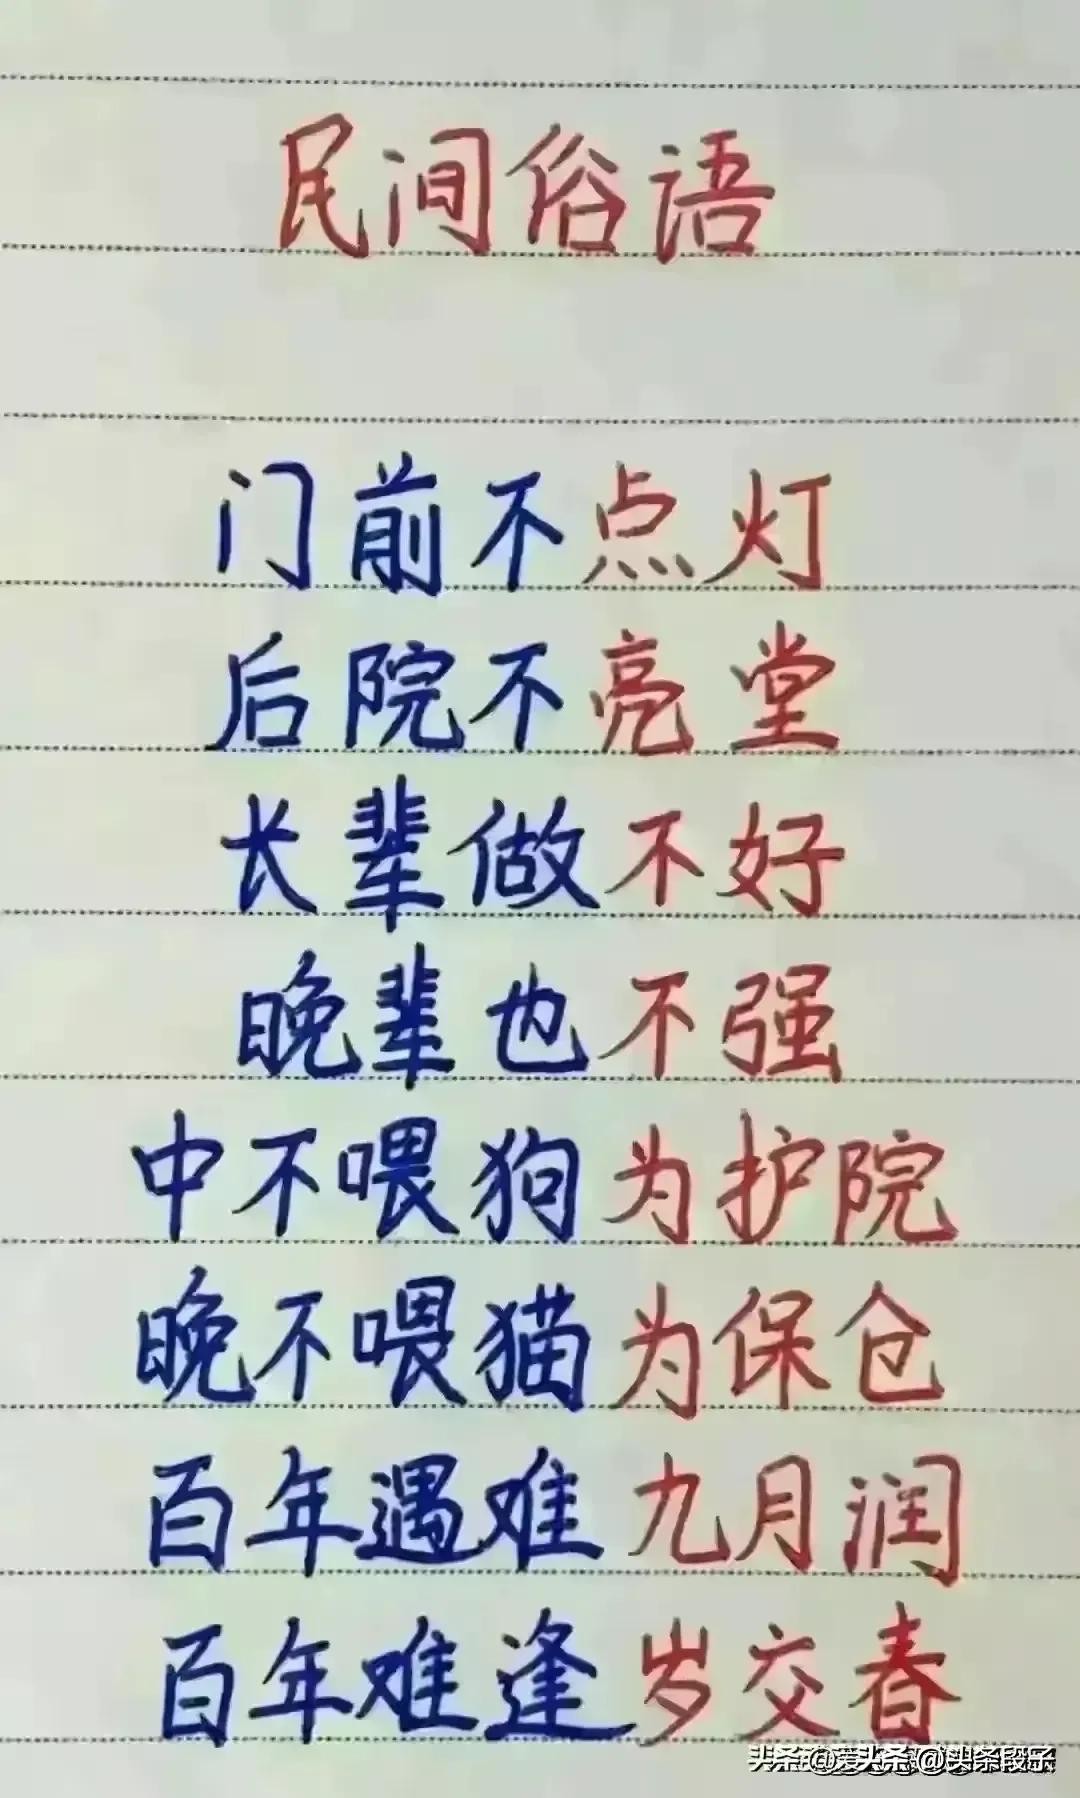 民间俗语
门前不点灯
后院不亮堂
长辈做不好
晚辈也不强
中不喂狗为护院
晚不喂猫为保仓
百年遇难九月润
百年难逢岁交春
@头条段子